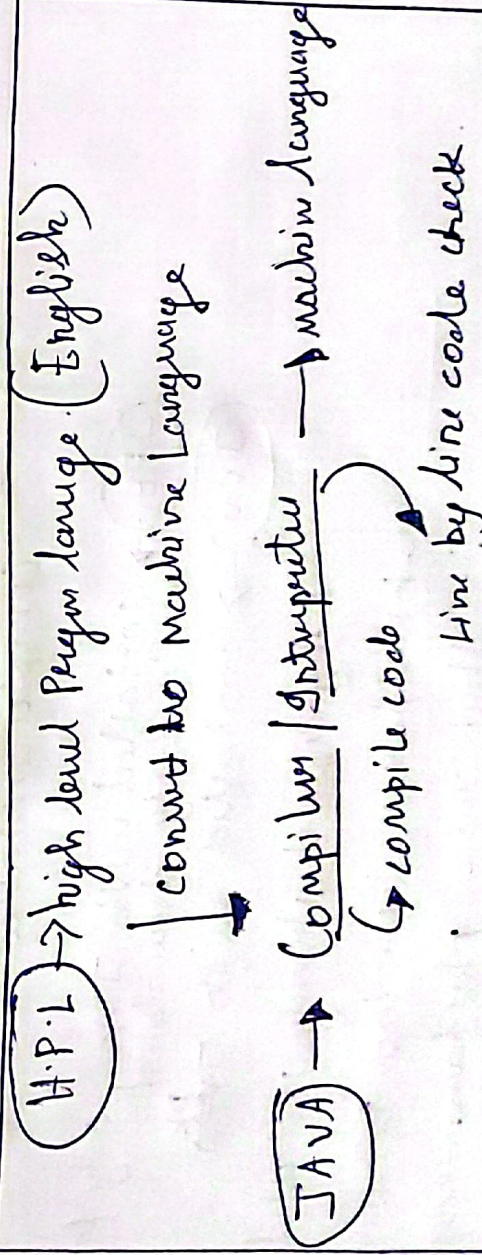 H.P.L → high level Progm lauge. (English)
Convert to Machine Language
JAVA → Compiler / Interpreter → Machin language
↳ compile code
Line by line code check.